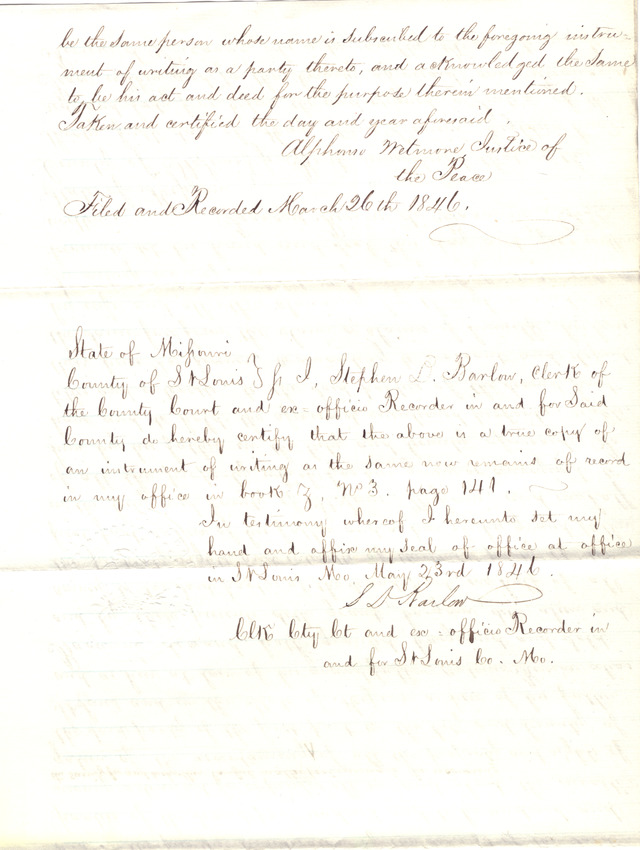 be the same person whose name is subscribed to the foregoing instru=
ment of writing as a party thereto, and acknowledged the same
to be his act and deed for the purpose therein mentioned.
Taken and certified the day and year aforesaid.
Alphonso Wetmore Justice of
the Peace
Filed and Recorded March 26th 1846.
State of Missouri
County of St Louis } ss I, Stephen D. Barlow, Clerk of
the County Court and ex=officio Recorder in and for Said
County do hereby certify that the above is a true copy of
an instrument of writing as the same now remains of record
in my office in book Z, No 3. page 141.
In testimony whereof I hereunto set my
hand and affix my seal of office at office
in St Louis Mo. May 23rd 1846.
S D Barlow
Clk Cty Ct and ex=officio Recorder in
and for St Louis Co. Mo.